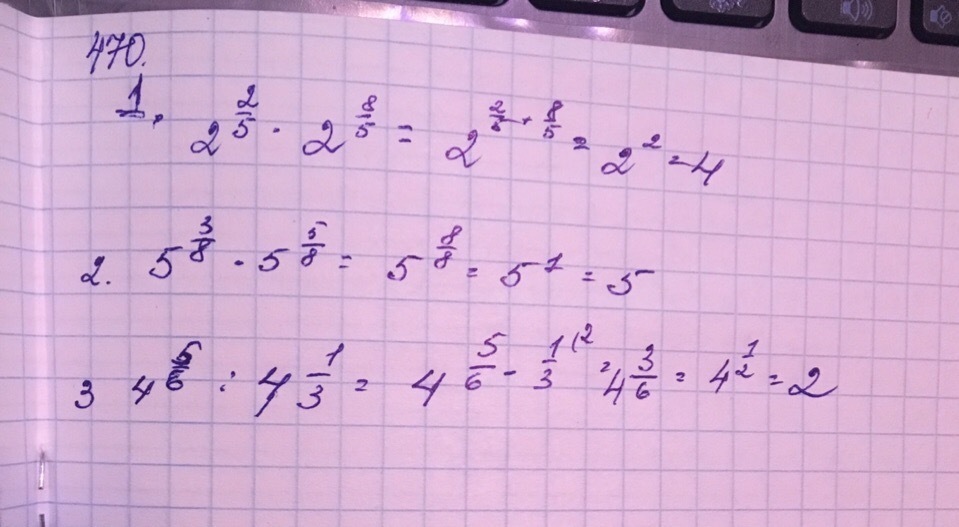 470.
1. 2^{2/5} · 2^{8/5} = 2^{2/5 + 8/5} = 2^2 = 4
2. 5^{3/8} · 5^{5/8} = 5^{8/8} = 5^1 = 5
3 4^{5/6} : 4^{1/3} = 4^{5/6 - 1/3 (2} = 4^{3/6} = 4^{1/2} = 2